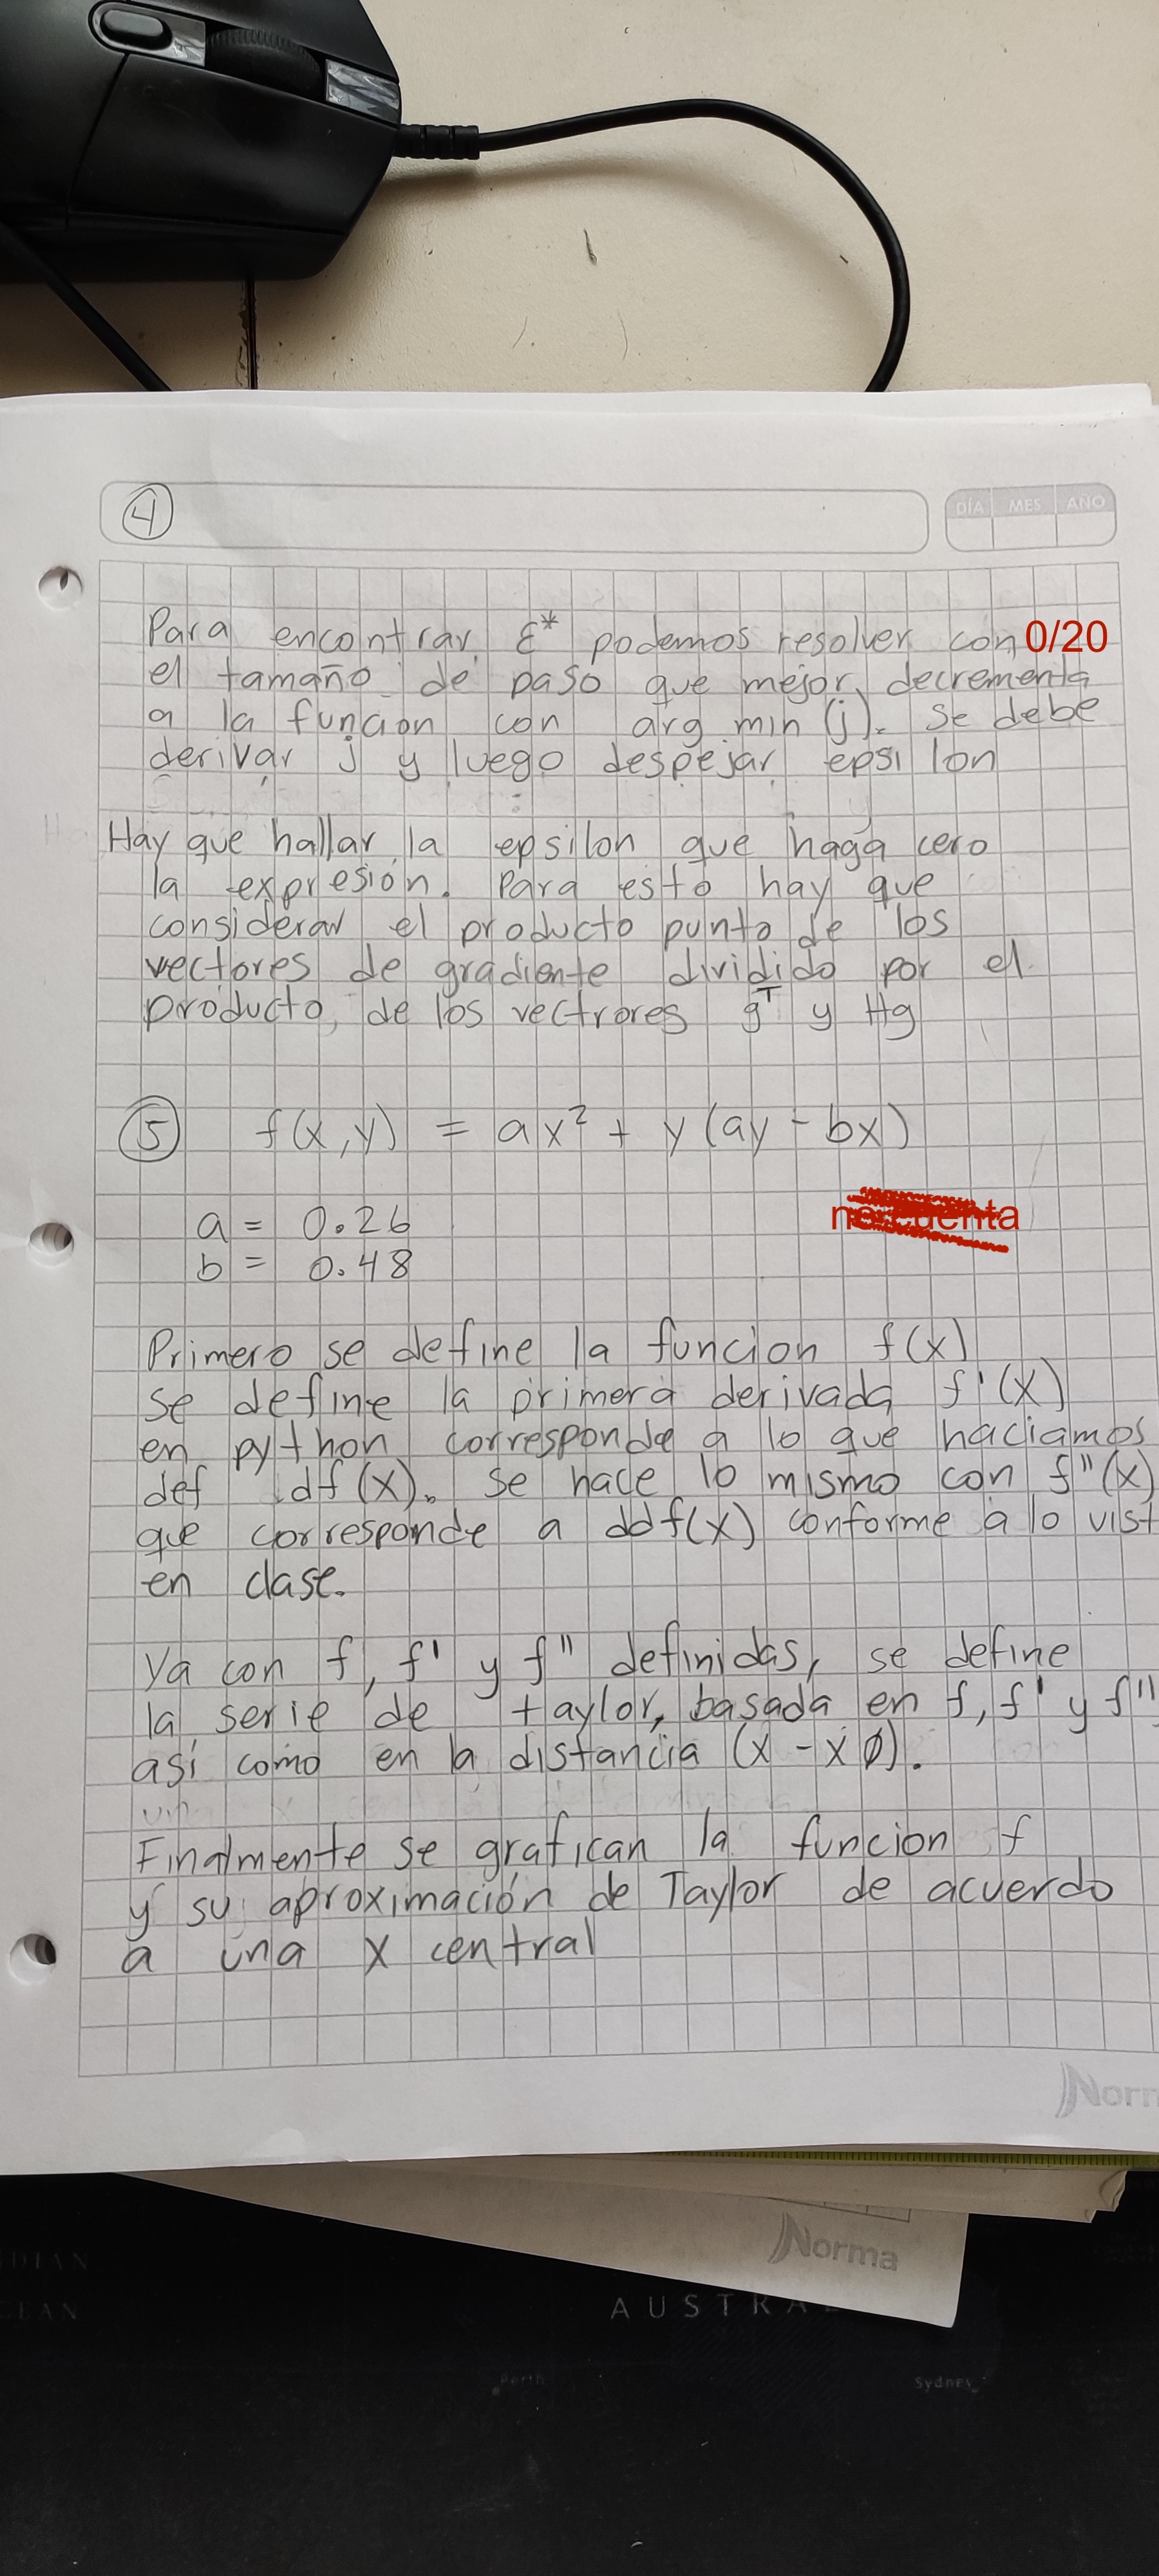 4
DÍA MES AÑO
Para encontrar ε* podemos resolver con 0/20
el tamaño de paso que mejor decrementa
a la funcion con arg min (j). Se debe
derivar j y luego despejar epsilon
Hay que hallar la epsilon que haga cero
la expresión. Para esto hay que
considerar el producto punto de los
vectores de gradiente dividido por el
producto, de los vectrores gᵀ y Hg
5 f(x,y) = ax² + y(ay - bx)
a = 0.26
b = 0.48
Primero se define la funcion f(x)
se define la primera derivada f'(x)
en python corresponde a lo que haciamos
def df(x). Se hace lo mismo con f"(x)
que corresponde a ddf(x) conforme a lo vist
en clase.
Ya con f, f' y f" definidas, se define
la serie de taylor, basada en f, f' y f"
así como en la distancia (x - x0).
Finalmente se grafican la funcion f
y su aproximación de Taylor de acuerdo
a una x central
Norm
Norma
DIAN
CEAN
AUSTRA
Perth
Sydney